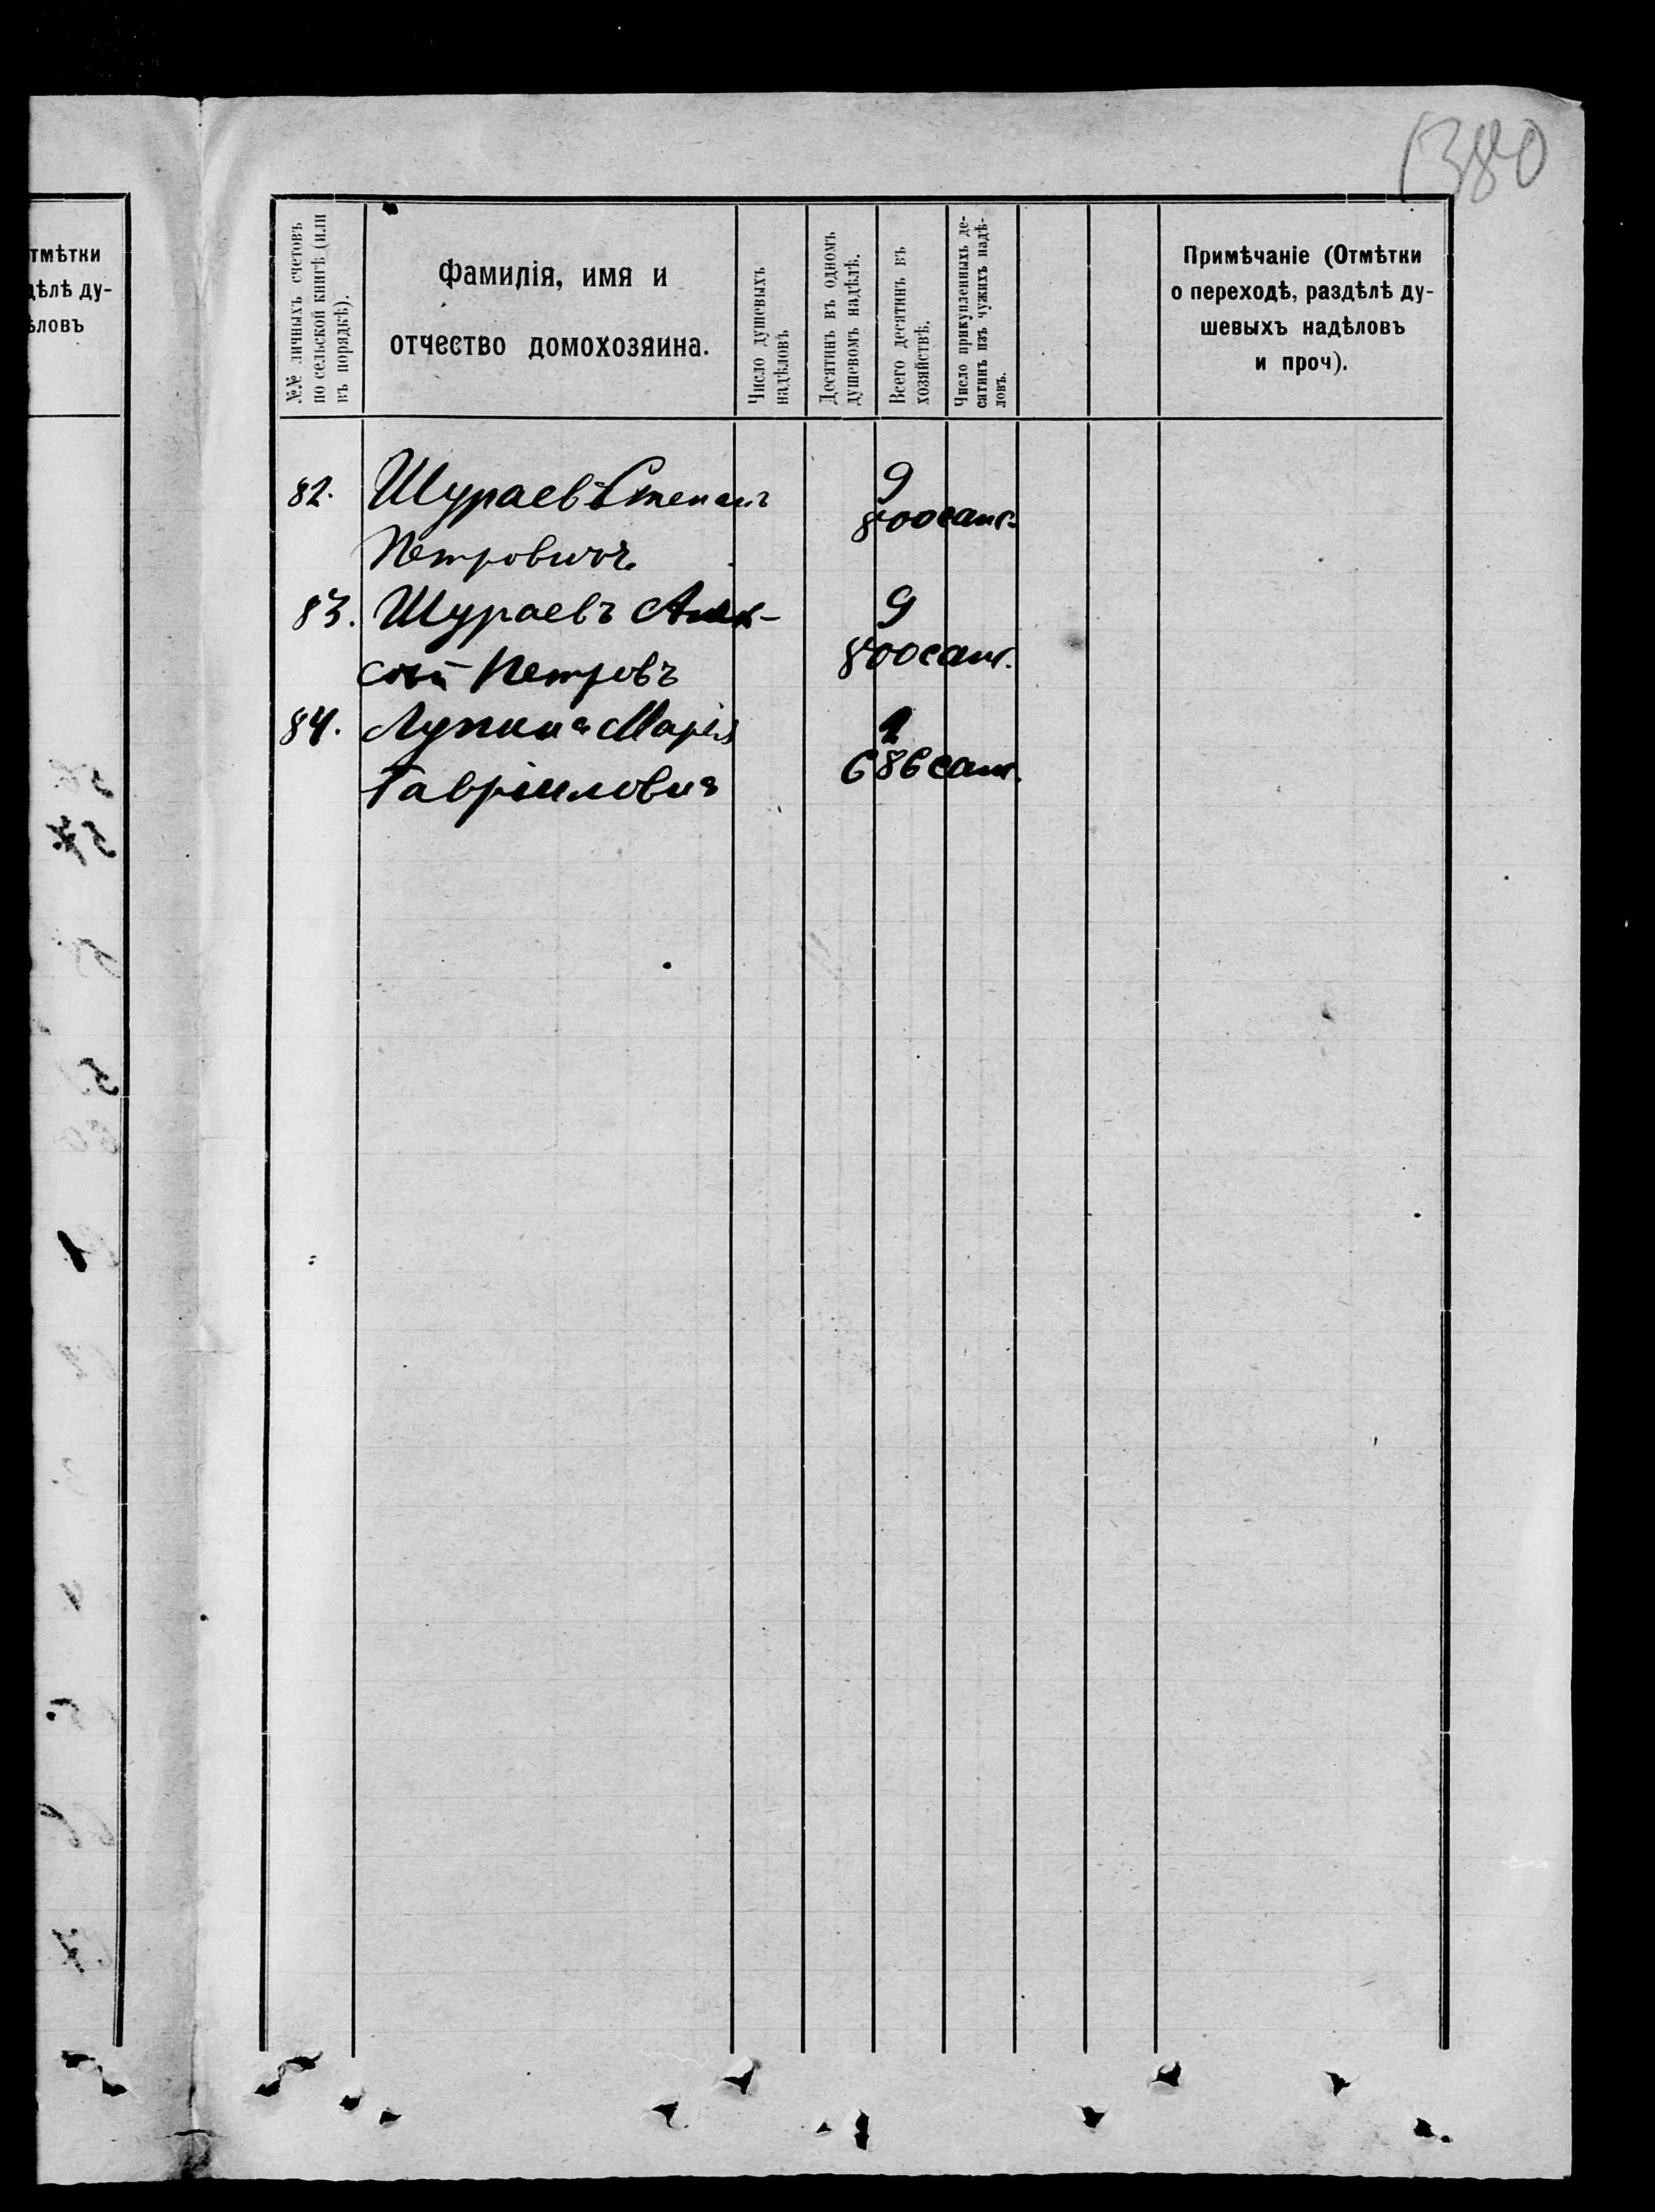 380
тмѣтки
дѣлѣ ду-
ѣловъ
№№ личныхъ счетовъ
по сельской книгѣ (или
въ порядкѣ).
Фамилія, имя и
отчество домохозяина.
Число душевыхъ
надѣловъ
Десятинъ въ одномъ
душевомъ надѣлѣ.
Всего десятинъ въ
хозяйствѣ.
Число прикупленныхъ де-
сятинъ изъ чужихъ надѣ-
ловъ.
Примѣчаніе (Отмѣтки
о переходѣ, раздѣлѣ ду-
шевыхъ надѣловъ
и проч).
82. Шураевъ Степанъ 9
Петровичъ 800 саж.
83. Шураевъ Алек- 9
сѣй Петровъ 800 саж.
84. Марія
Гавріиловна 686 саж.